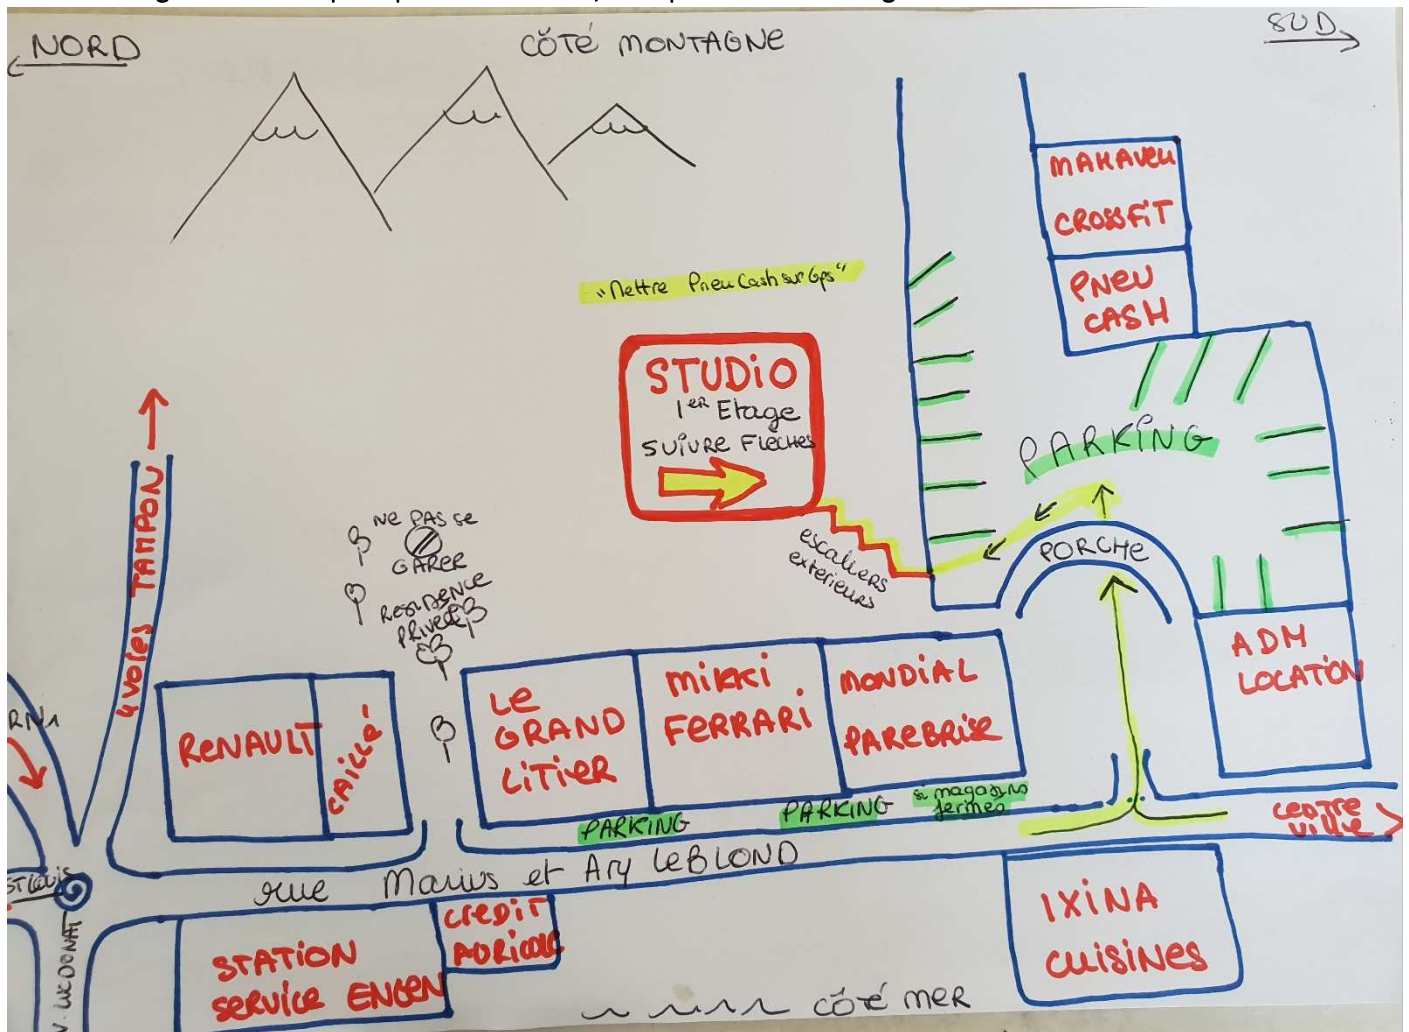 NORD
CÔTÉ MONTAGNE
SUD
MAKAVELI
CROSSFIT
PNEU
CASH
"Mettre Pneu Cash sur Gps"
STUDIO
1ER Etage
SUIVRE FLÈCHES
PARKING
PORCHE
escaliers
exterieurs
NE PAS SE
GARER
RESIDENCE
PRIVEE
4 VOIES TAMPON
RN1
RENAULT
CAILLE-
LE
GRAND
LITIER
MIKKI
FERRARI
MONDIAL
PAREBRISE
ADM
LOCATION
PARKING
PARKING
si magasins
fermés
CENTRE
VILLE
rue Marius et Ary LEBLOND
ST LOUIS
LUC DONAT
STATION
SERVICE ENGEN
CREDIT
AGRICOLE
IXINA
CUISINES
CÔTÉ MER